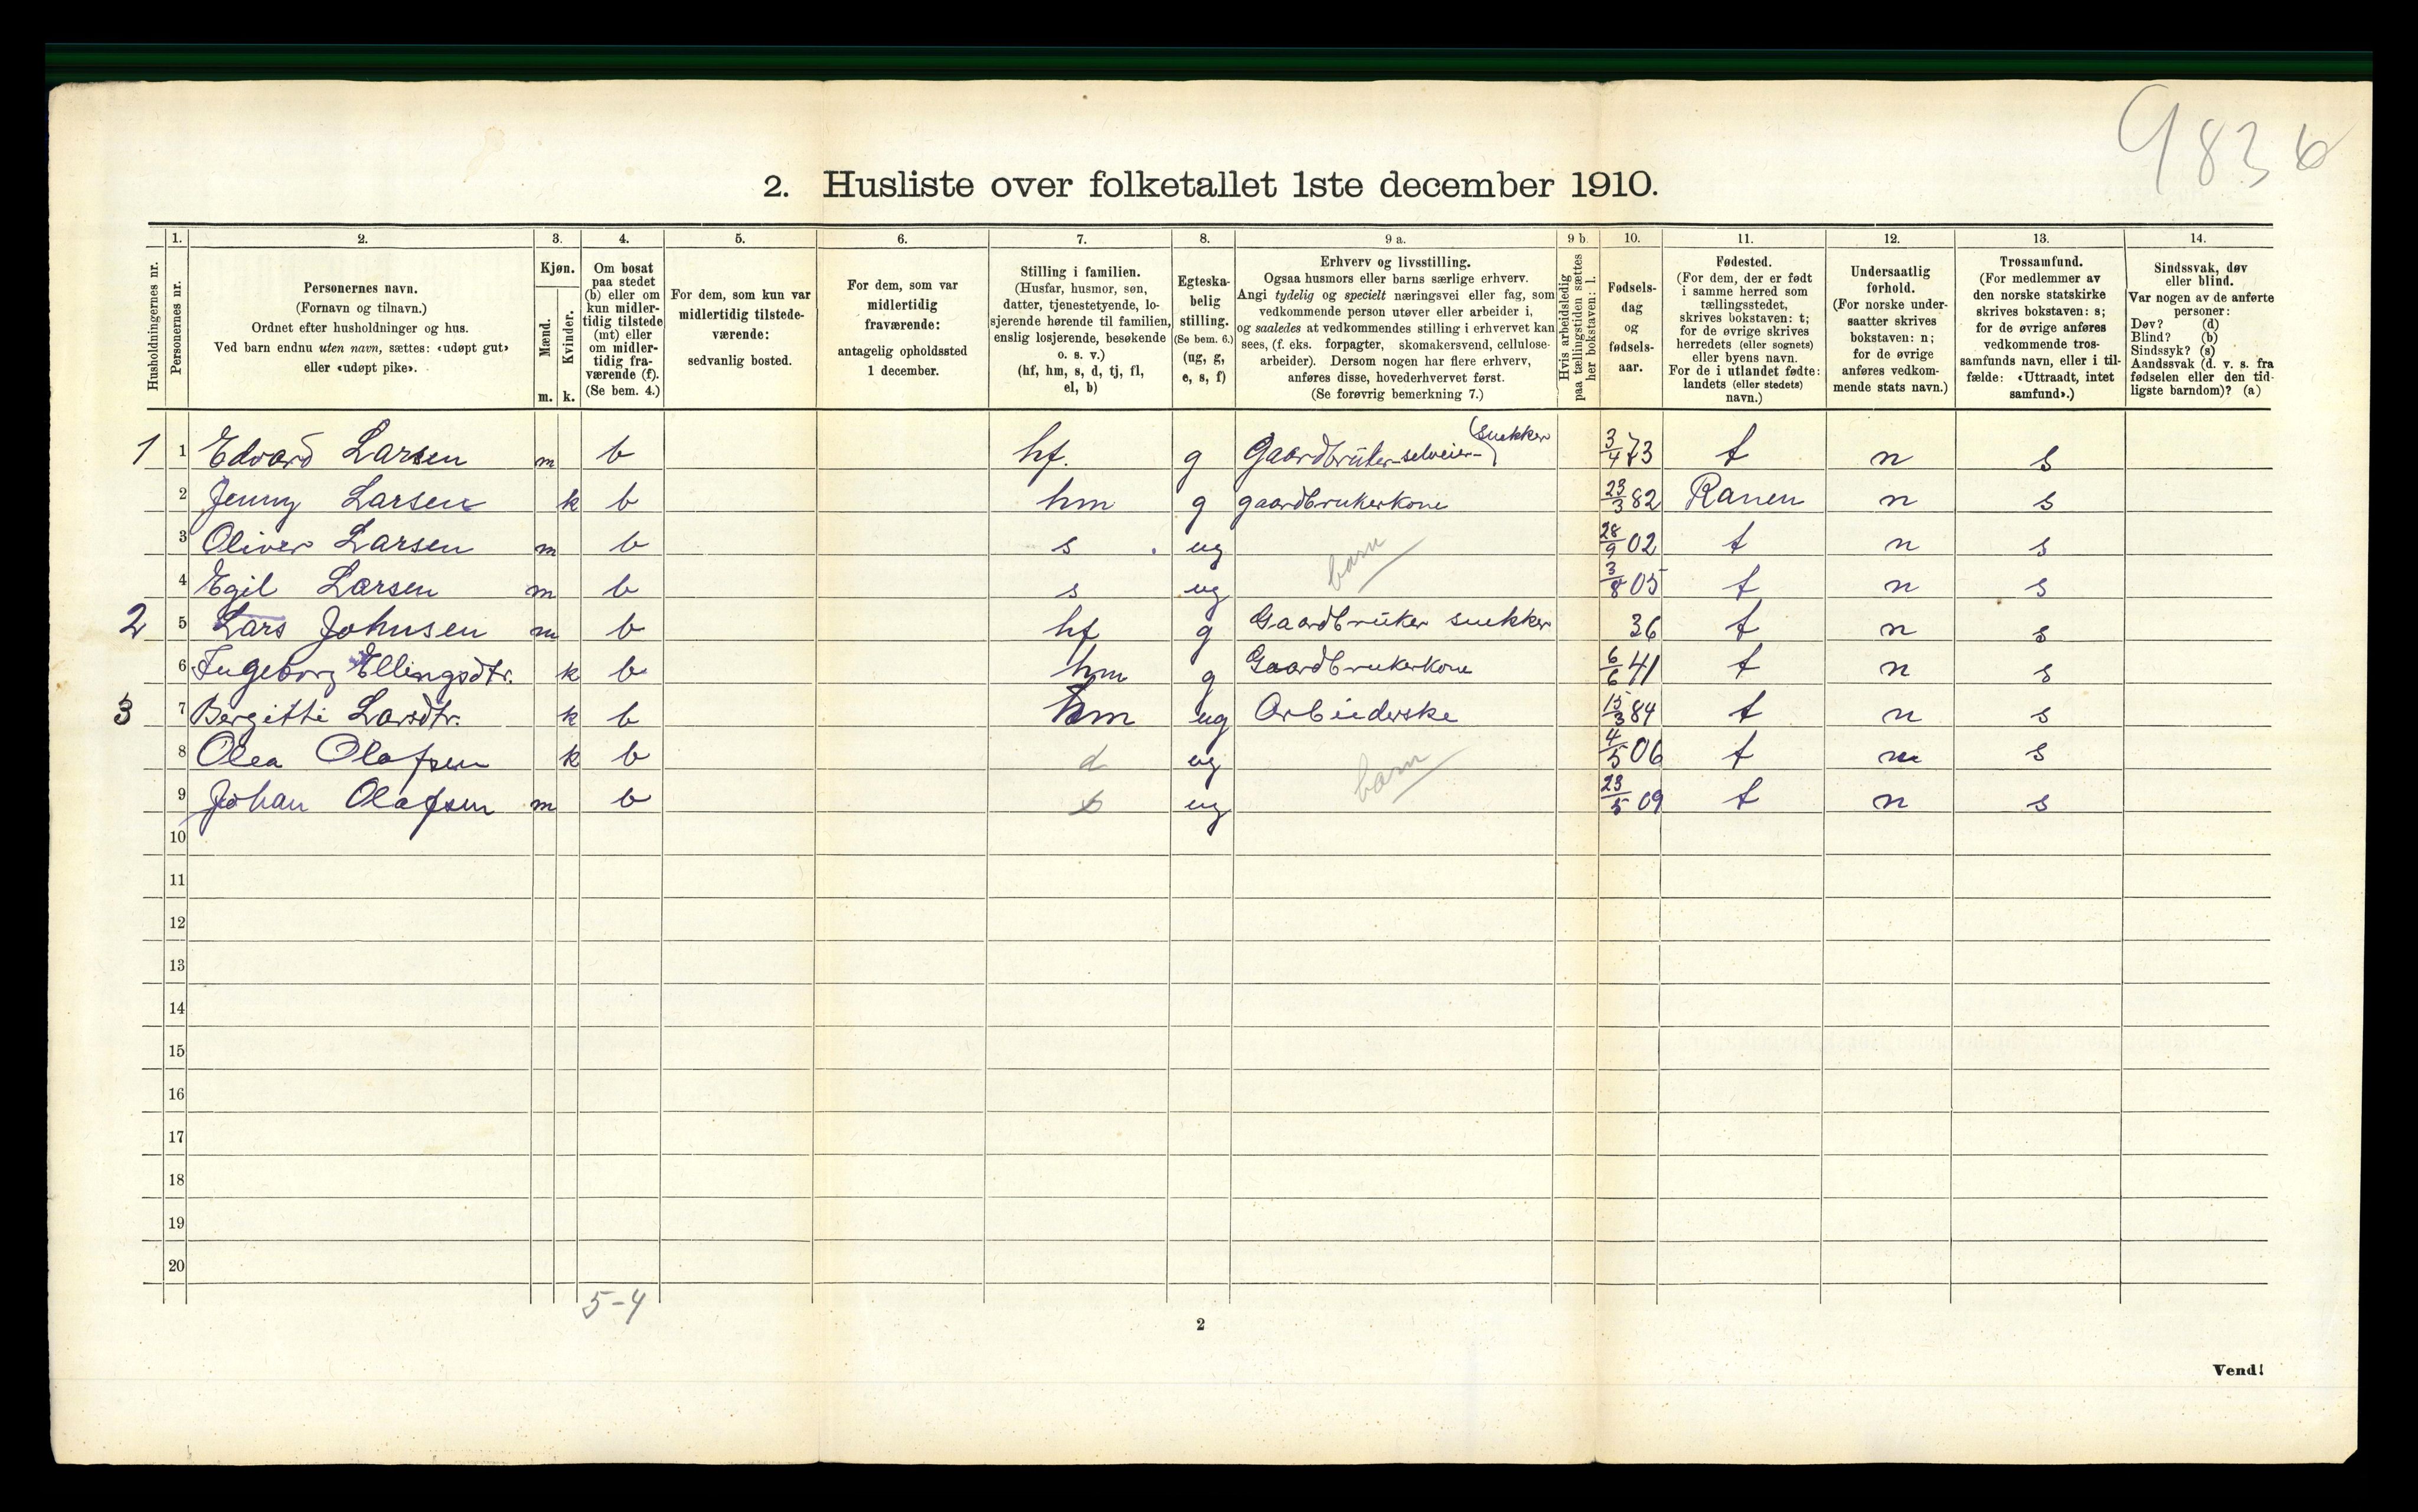 9836
2. Husliste over folketallet 1ste december 1910.
Husholdningernes nr.
1. Personernes nr.
2. Personernes navn.
(Fornavn og tilnavn.)
Ordnet efter husholdninger og hus.
Ved barn endnu uten navn, sættes: «udøpt gut»
eller «udøpt pike».
3. Kjøn.
Mænd. m.
Kvinder. k.
4. Om bosat
paa stedet
(b) eller om
kun midler-
tidig tilstede
(mt) eller
om midler-
tidig fra-
værende (f).
(Se bem. 4.)
5. For dem, som kun var
midlertidig tilstede-
værende:
sedvanlig bosted.
6. For dem, som var
midlertidig
fraværende:
antagelig opholdssted
1 december.
7. Stilling i familien.
(Husfar, husmor, søn,
datter, tjenestetyende, lo-
sjerende hørende til familien,
enslig losjerende, besøkende
o. s. v.)
(hf, hm, s, d, tj, fl,
el, b)
8. Egteska-
belig
stilling.
(Se bem. 6.)
(ug, g,
e, s, f)
9 a. Erhverv og livsstilling.
Ogsaa husmors eller barns særlige erhverv.
Angi tydelig og specielt næringsvei eller fag, som
vedkommende person utøver eller arbeider i,
og saaledes at vedkommendes stilling i erhvervet kan
sees, (f. eks. forpagter, skomakersvend, cellulose-
arbeider). Dersom nogen har flere erhverv,
anføres disse, hovederhvervet først.
(Se forøvrig bemerkning 7.)
9 b. Hvis arbeidsledig
paa tællingstiden sættes
her bokstaven: l.
10. Fødsels-
dag
og
fødsels-
aar.
11. Fødested.
(For dem, der er født
i samme herred som
tællingsstedet,
skrives bokstaven: t;
for de øvrige skrives
herredets (eller sognets)
eller byens navn.
For de i utlandet fødte:
landets (eller stedets)
navn.)
12. Undersaatlig
forhold.
(For norske under-
saatter skrives
bokstaven: n;
for de øvrige
anføres vedkom-
mende stats navn.)
13. Trossamfund.
(For medlemmer av
den norske statskirke
skrives bokstaven: s;
for de øvrige anføres
vedkommende tros-
samfunds navn, eller i til-
fælde: «Uttraadt, intet
samfund».)
14. Sindssvak, døv
eller blind.
Var nogen av de anførte
personer:
Døv? (d)
Blind? (b)
Sindssyk? (s)
Aandssvak (d. v. s. fra
fødselen eller den tid-
ligste barndom)? (a)
1 1 Edvard Larsen m b hf. g Gaardbruker-selveier- snekker 3/4 73 t n s
2 Jenny Larsen k b hm g gaardbrukerkone 23/3 82 Ranen n s
3 Oliver Larsen m b s ug barn 28/9 02 t n s
4 Egil Larsen m b s ug 3/8 05 t n s
2 5 Lars Johnsen m b hf g Gaardbruker snekker 36 t n s
6 Ingeborg Ellingsdtr. k b hm g Gaardbrukerkone 6/6 41 t n s
3 7 Bergitte Larsdtr. k b hm ug Arbeiderske 15/3 84 t n s
8 Olea Olafsen k b d ug barn 4/5 06 t n s
9 Johan Olafsen m b ug 23/5 09 t n s
10
11
12
13
14
15
16
17
18
19
20
5-4
2
Vend!